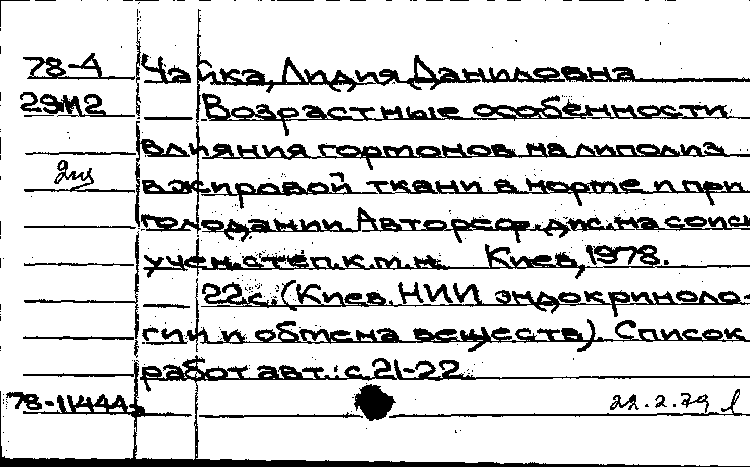 78-4 Чайка, Лидия Даниловна
29112 Возрастные особенности
влияния гормонов на липолиз
в жировой ткани в норме и при
голодании. Автореф. дис. на соиск
учен. степ. к.м.н. Киев, 1978.
22с. (Киев. НИИ эндокриноло-
гии и обмена веществ). Список
работ авт.: с. 21-22
78-11444
22.2.79